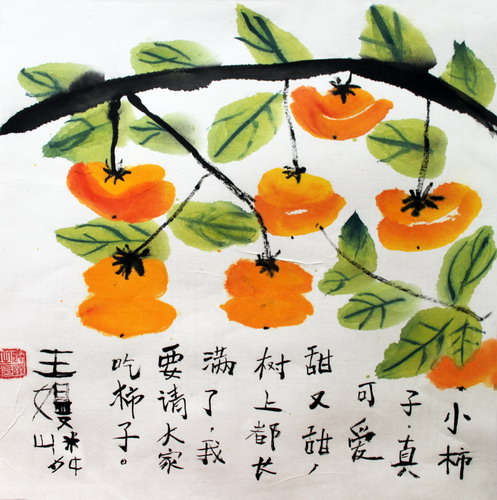 小柿
子,真
可爱
甜又甜,
树上都长
满了,我
要请大家
吃柿子。
王